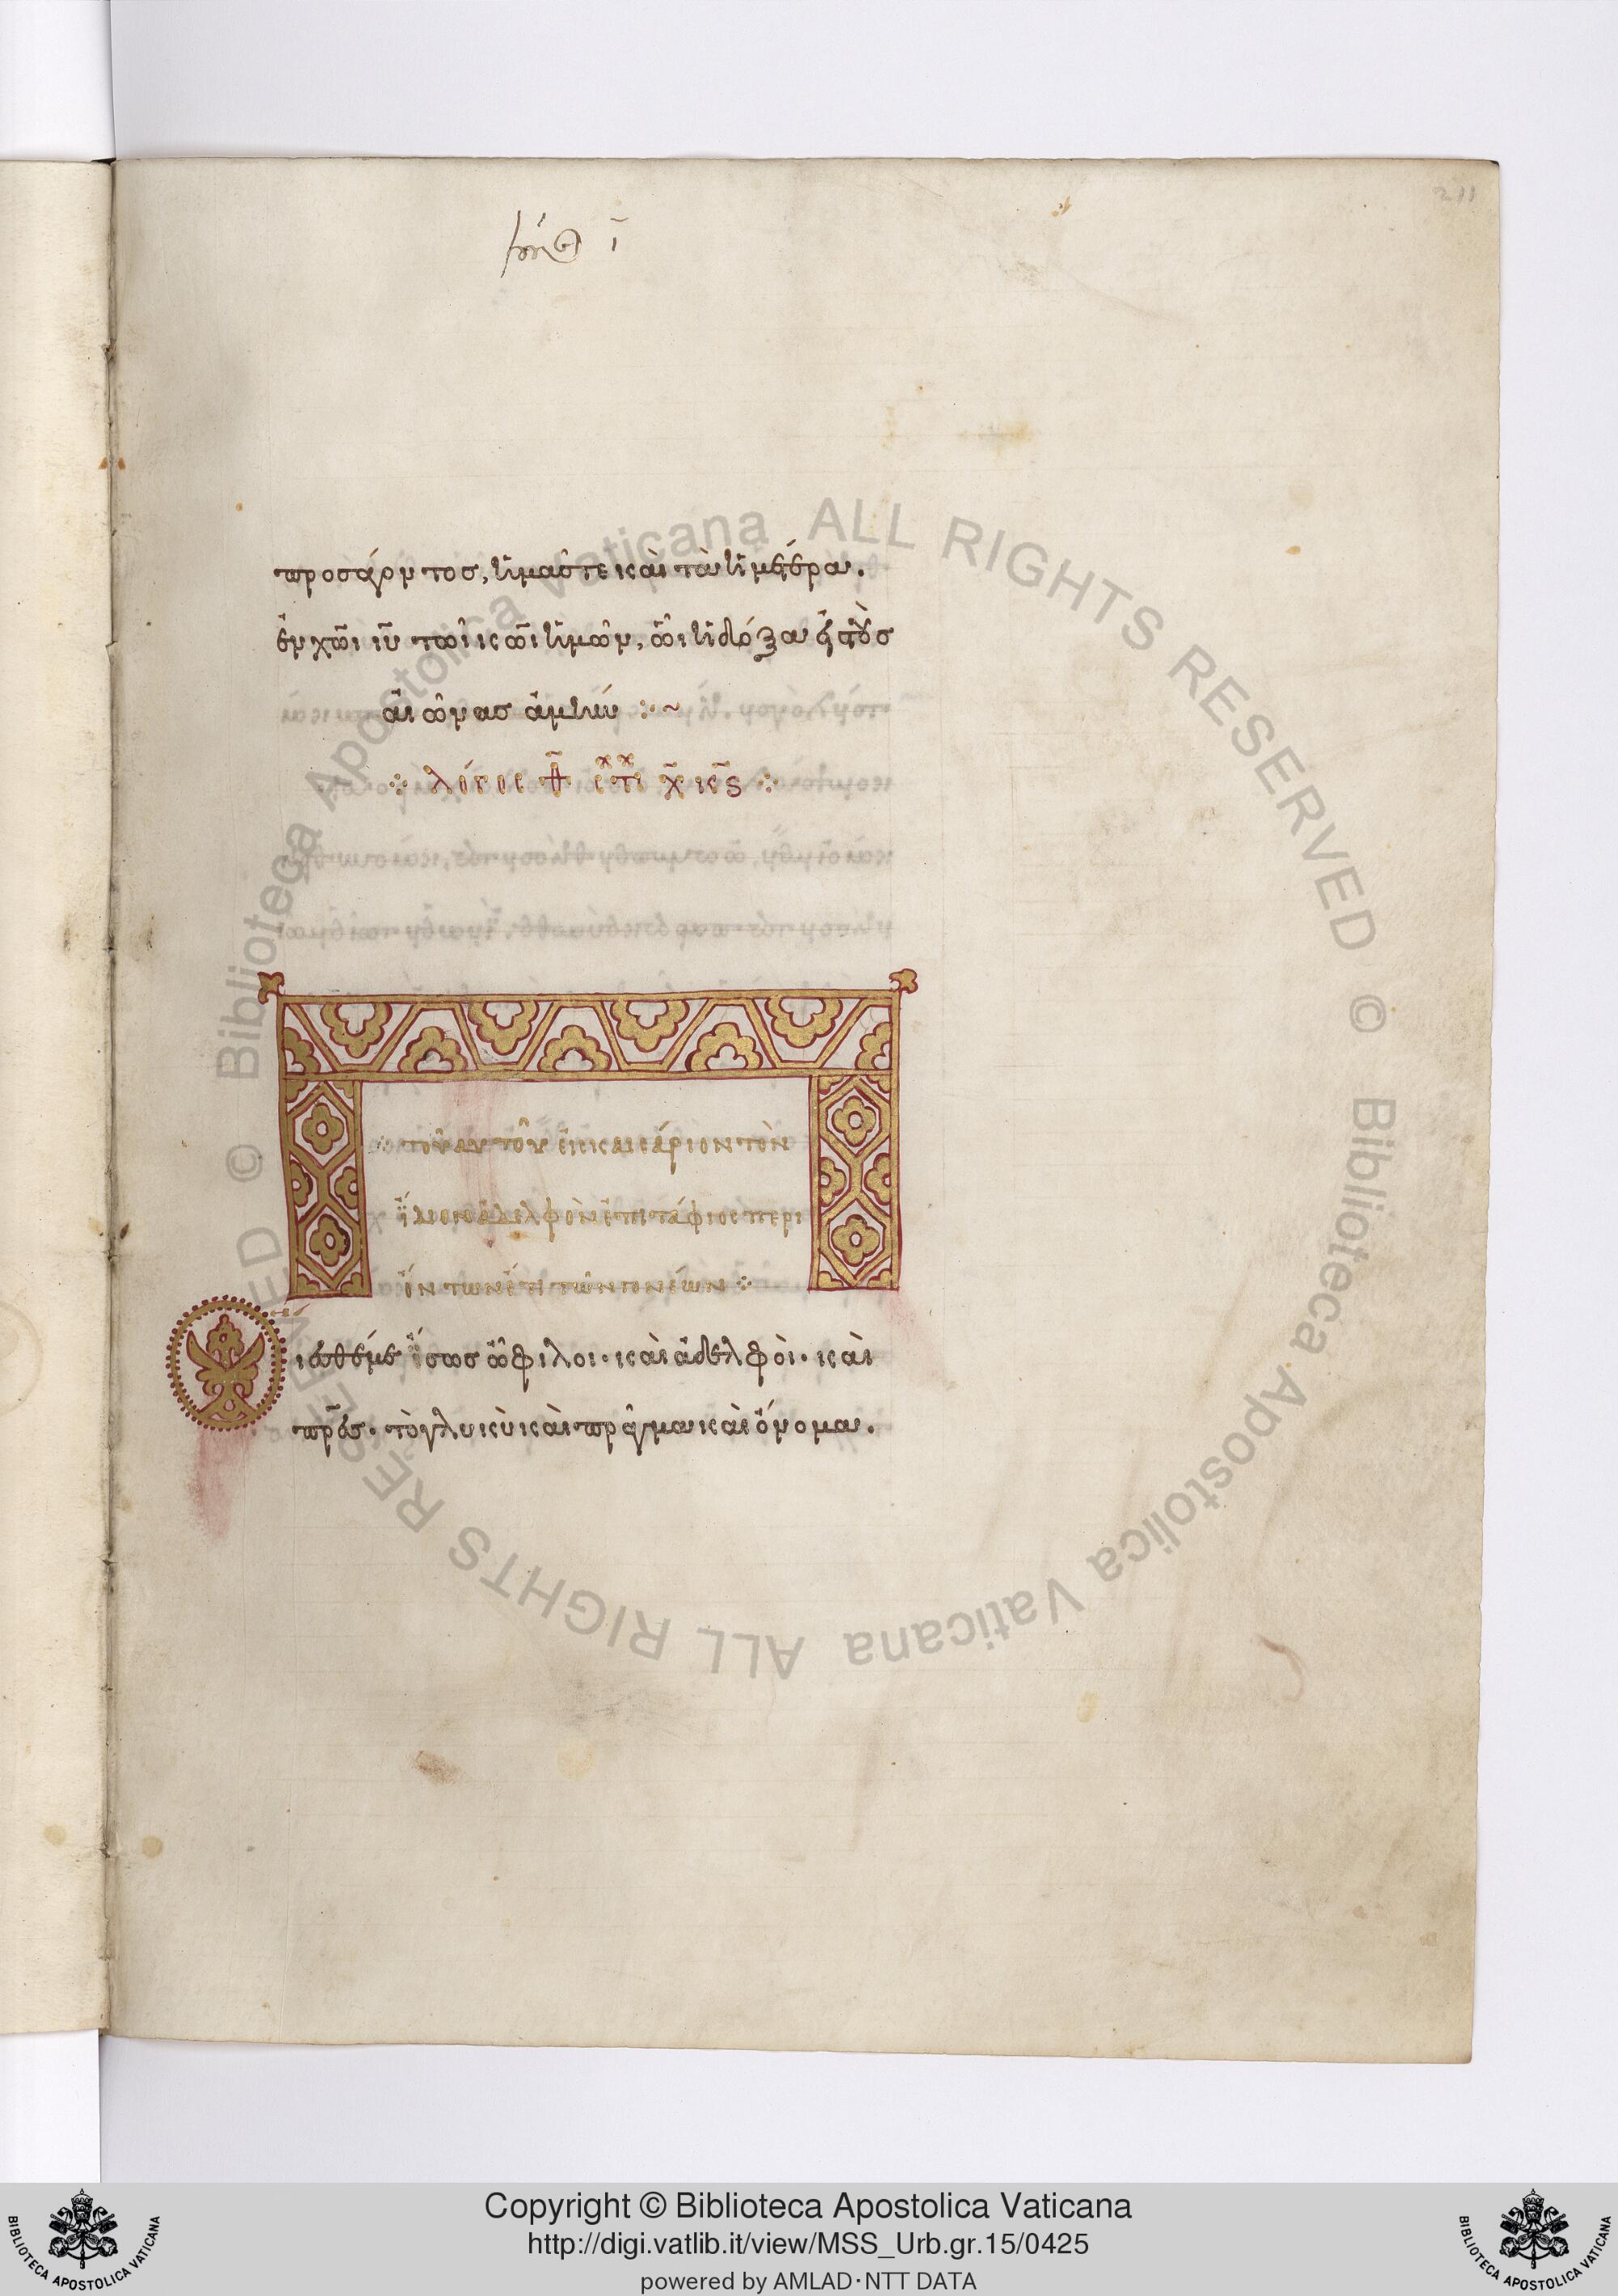 211
προσάγοντος, ἡμᾶς τε καὶ τὰ ἡμέτερα.
ἐν χῶι ἰῦ τῶι κῶι ἡμῶν, ὧι ἡ δόξα εἰς τοὺς
αἰῶνας ἀμήν :·~
λόγος
τοῦ αὐτοῦ εἰς καισάριον τὸν
ἴδιον ἀδελφὸν ἐπιτάφιος περι
όντων ἔτι τῶν γονέων
Οἴεσθέ με ἴσως ὦ φίλοι· καὶ ἀδελφοὶ· καὶ
πρ̅ες· τὸ γλυκὺ καὶ πρᾶγμα καὶ ὄνομα.
© Biblioteca Apostolica Vaticana ALL RIGHTS RESERVED © Biblioteca Apostolica Vaticana ALL RIGHTS RESERVED
BIBLIOTECA APOSTOLICA VATICANA
Copyright © Biblioteca Apostolica Vaticana
http://digi.vatlib.it/view/MSS_Urb.gr.15/0425
powered by AMLAD·NTT DATA
BIBLIOTECA APOSTOLICA VATICANA